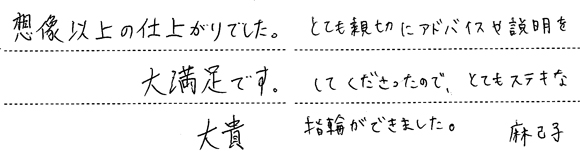 想像以上の仕上がりでした。
大満足です。
大貴
とても親切にアドバイスや説明を
してくださったので、とてもステキな
指輪ができました。
麻己子